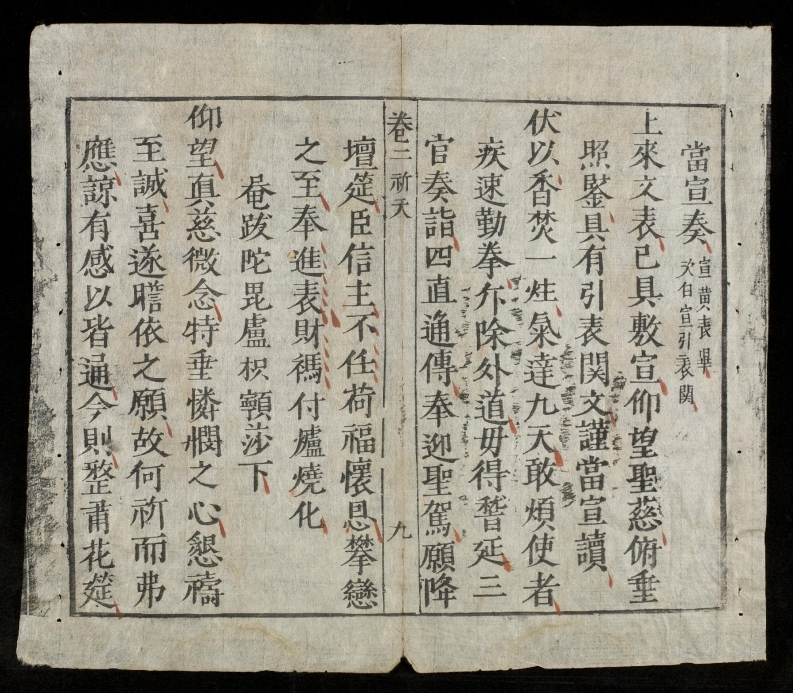 當宣奏 宣黃表畢
次白宣引表関
上來文表已具敷宣仰望聖慈俯垂
照鑒具有引表関文謹當宣讀
伏以香焚一炷氣達九天敢煩使者
疾速勤拳尒除外道毋得誓延三
官奏詣四直通傳奉迎聖駕願降
卷二 祈天 九
壇筵臣信主不任荷福懷恩攀戀
之至奉進表財禡付爐燒化
唵跋陀毘盧枳顙莎下
仰望真慈微念特垂憐憫之心懇禱
至誠喜遂瞻依之願故何祈而弗
應諒有感以皆通今則整肅花筵